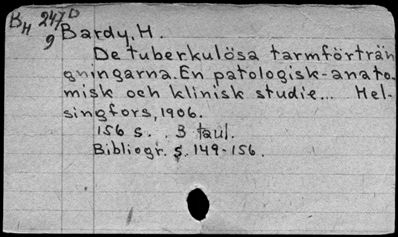 BH 247 D
9
Bardy, H.
De tuberkulösa tarmförträn
gningarna. En patologisk-anato-
misk och klinisk studie... Hel-
singfors, 1906.
156 s. . 3 taul.
Bibliogr. s. 149-156.